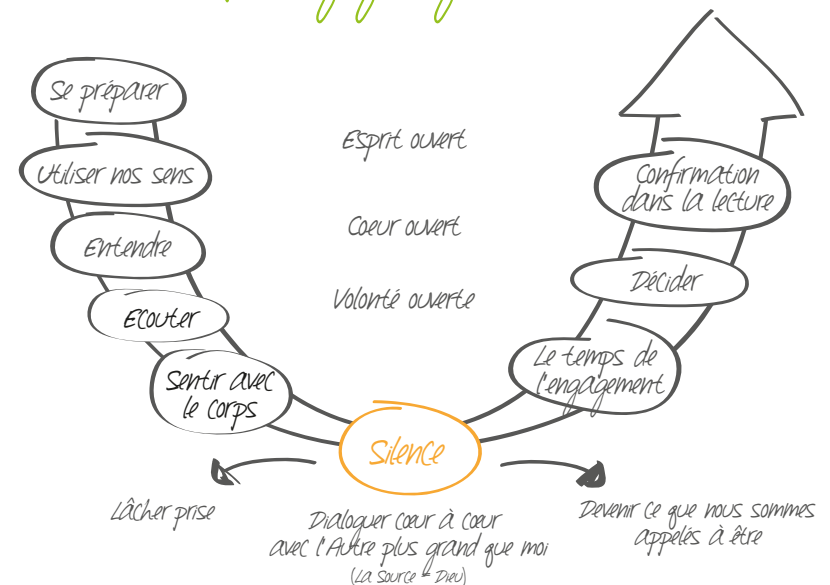 Se préparer
Utiliser nos sens
Entendre
Ecouter
Sentir avec
le corps
Esprit ouvert
Coeur ouvert
Volonté ouverte
Confirmation
dans la lecture
Décider
Le temps de
l'engagement
Silence
Lâcher prise
Dialoguer cœur à cœur
avec l'Autre plus grand que moi
(La Source = Dieu)
Devenir ce que nous sommes
appelés à être